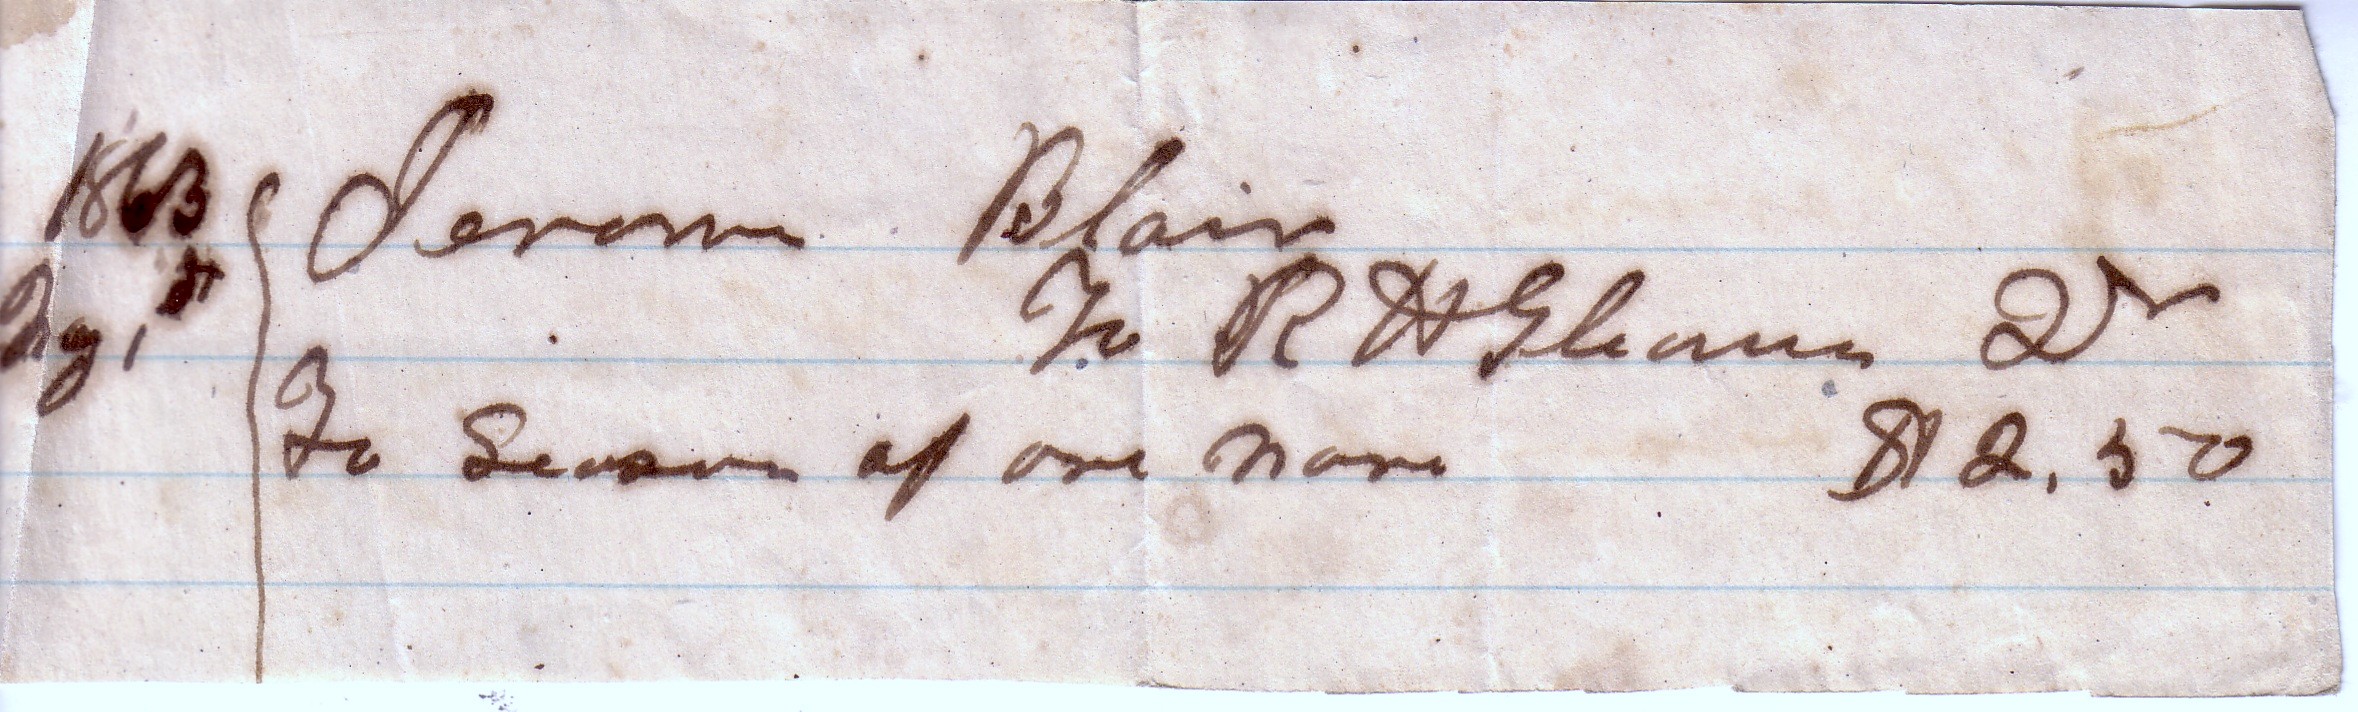 1863 Jerome Blair
Aug 1st To R H Gleaves Dr
To Season of one mare $2.50